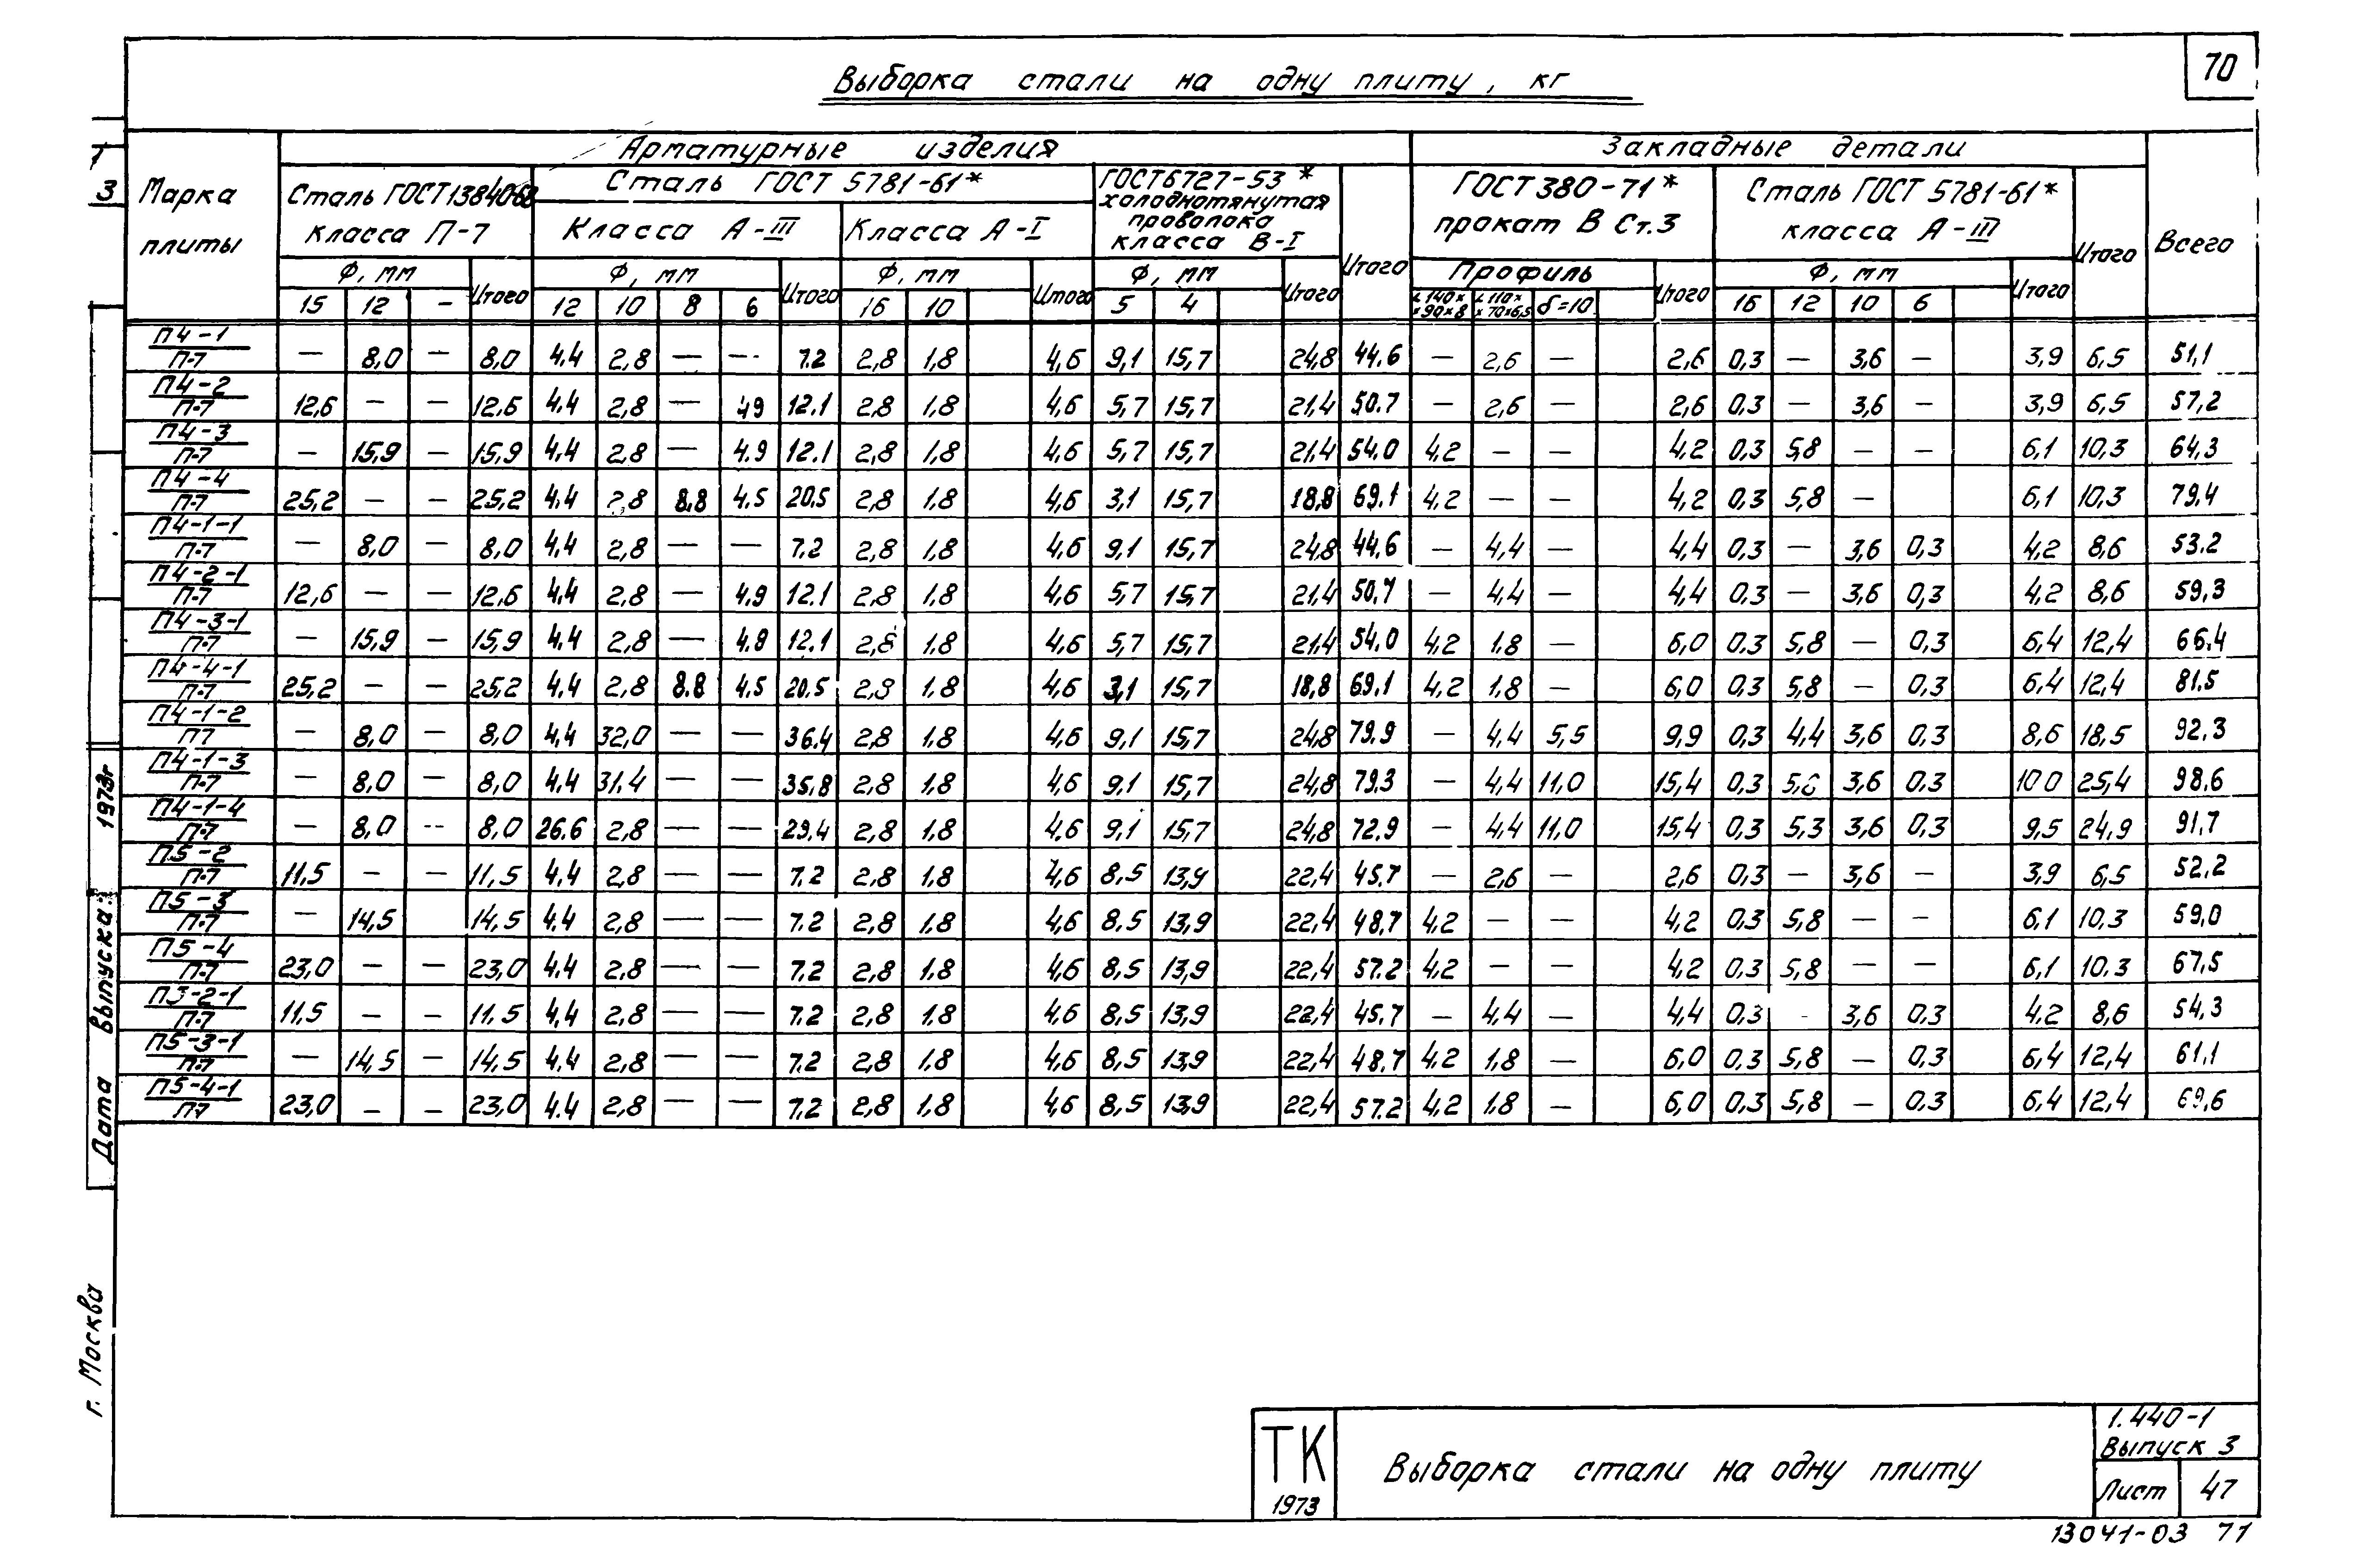 70
Выборка стали на одну плиту, кг
Марка плиты
Арматурные изделия
Закладные детали
Всего
Сталь ГОСТ 13840-68 класса П-7
Сталь ГОСТ 5781-61*
Класса А-III
Класса А-I
ГОСТ 6727-53* холоднотянутая проволока класса В-I
Итого
ГОСТ 380-71* прокат В Ст.3
Сталь ГОСТ 5781-61* класса А-III
Итого
Ф, мм Итого Ф, мм Итого Ф, мм Итого Ф, мм Итого Профиль Итого Ф, мм Итого
15 12 – 12 10 8 6 16 10 5 4 ∟140××90×8 ∟110××70×6,5 δ=10 16 12 10 6
П4-1
П-7 — 8,0 — 8,0 4.4 2,8 — — 7.2 2,8 1.8 4,6 9,1 15,7 24,8 44.6 — 2,6 — 2,6 0,3 — 3,6 — 3,9 6,5 51,1
П4-2
П-7 12,6 — — 12,6 4.4 2,8 — 49 12.1 2,8 1,8 4,6 5,7 15,7 21,4 50.7 — 2,6 — 2,6 0,3 — 3,6 — 3,9 6,5 57,2
П4-3
П-7 — 15,9 — 15,9 4,4 2,8 — 4.9 12.1 2,8 1,8 4,6 5,7 15,7 21,4 54.0 4,2 — — 4,2 0,3 5,8 — — 6,1 10,3 64,3
П4-4
П-7 25,2 — — 25,2 4.4 2,8 8.8 4.5 20.5 2,8 1.8 4,6 3,1 15,7 18,8 69.1 4,2 — — 4,2 0,3 5,8 — 6,1 10,3 79,4
П4-1-1
П-7 — 8,0 — 8,0 4,4 2,8 — — 7.2 2,8 1,8 4,6 9,1 15,7 24,8 44,6 — 4,4 — 4,4 0,3 — 3,6 0,3 4,2 8,6 53.2
П4-2-1
П-7 12,6 — — 12,6 4.4 2,8 — 4.9 12.1 2,8 1.8 4,6 5,7 15,7 21,4 50.7 — 4,4 — 4,4 0,3 — 3,6 0,3 4,2 8,6 59,3
П4-3-1
П-7 — 15,9 — 15,9 4.4 2,8 — 4.9 12.1 2,8 1,8 4,6 5,7 15,7 21,4 54.0 4,2 1.8 — 6,0 0,3 5,8 — 0,3 6,4 12,4 66.4
П4-4-1
П-7 25,2 — — 25,2 4.4 2,8 8.8 4.5 20.5 2,8 1.8 4,6 3,1 15,7 18,8 69.1 4,2 1,8 — 6,0 0,3 5,8 — 0,3 6,4 12,4 81.5
П4-1-2
П7 — 8,0 — 8,0 4.4 32,0 — — 36.4 2,8 1.8 4,6 9,1 15,7 24,8 79.9 — 4,4 5,5 9,9 0,3 4,4 3,6 0,3 8,6 18,5 92,3
П4-1-3
П-7 — 8,0 — 8,0 4.4 31.4 — — 35,8 2,8 1.8 4,6 9,1 15,7 24,8 79.3 — 4,4 11,0 15,4 0,3 3,6 0,3 10 0 25,4 98.6
П4-1-4
П-7 — 8,0 — 8,0 26.6 2,8 — — 29.4 2,8 1.8 4,6 9,1 15,7 24,8 72.9 — 4,4 11,0 15,4 0,3 5,3 3,6 0,3 9,5 24,9 91,7
П5-2
П-7 11,5 — — 11,5 4.4 2,8 — — 7.2 2,8 1.8 4,6 8,5 13,9 22,4 45.7 — 2,6 — 2,6 0,3 — 3,6 — 3,9 6,5 52,2
П5-3
П-7 — 14,5 — 14,5 4.4 2,8 — — 7.2 2,8 1,8 4,6 8,5 13,9 22,4 48,7 4,2 — — 4,2 0,3 5,8 — — 6,1 10,3 59,0
П5-4
П-7 23,0 — — 23,0 4.4 2,8 — — 7.2 2,8 1.8 4,6 8,5 13,9 22,4 57.2 4,2 — — 4,2 0,3 5,8 — — 6,1 10,3 67,5
П3-2-1
П-7 11,5 — — 11,5 4,4 2,8 — — 7.2 2,8 1.8 4,6 8,5 13,9 22,4 45.7 — 4,4 — 4,4 0,3 - 3,6 0,3 4,2 8,6 54,3
П5-3-1
П-7 — 14,5 — 14,5 4.4 2,8 — — 7.2 2,8 1.8 4,6 8,5 13,9 22,4 48.7 4,2 1,8 — 6,0 0,3 5,8 — 0,3 6,4 12,4 61,1
П5-4-1
П7 23,0 — — 23,0 4.4 2,8 — — 7.2 2,8 1,8 4,6 8,5 13,9 22,4 57.2 4,2 1,8 — 6,0 0,3 5,8 — 0,3 6,4 12,4 69,6
3
Дата выпуска: 1973г
г. Москва
ТК
1973
Выборка стали на одну плиту
1.440-1
Выпуск 3
Лист 47
13041-03 71